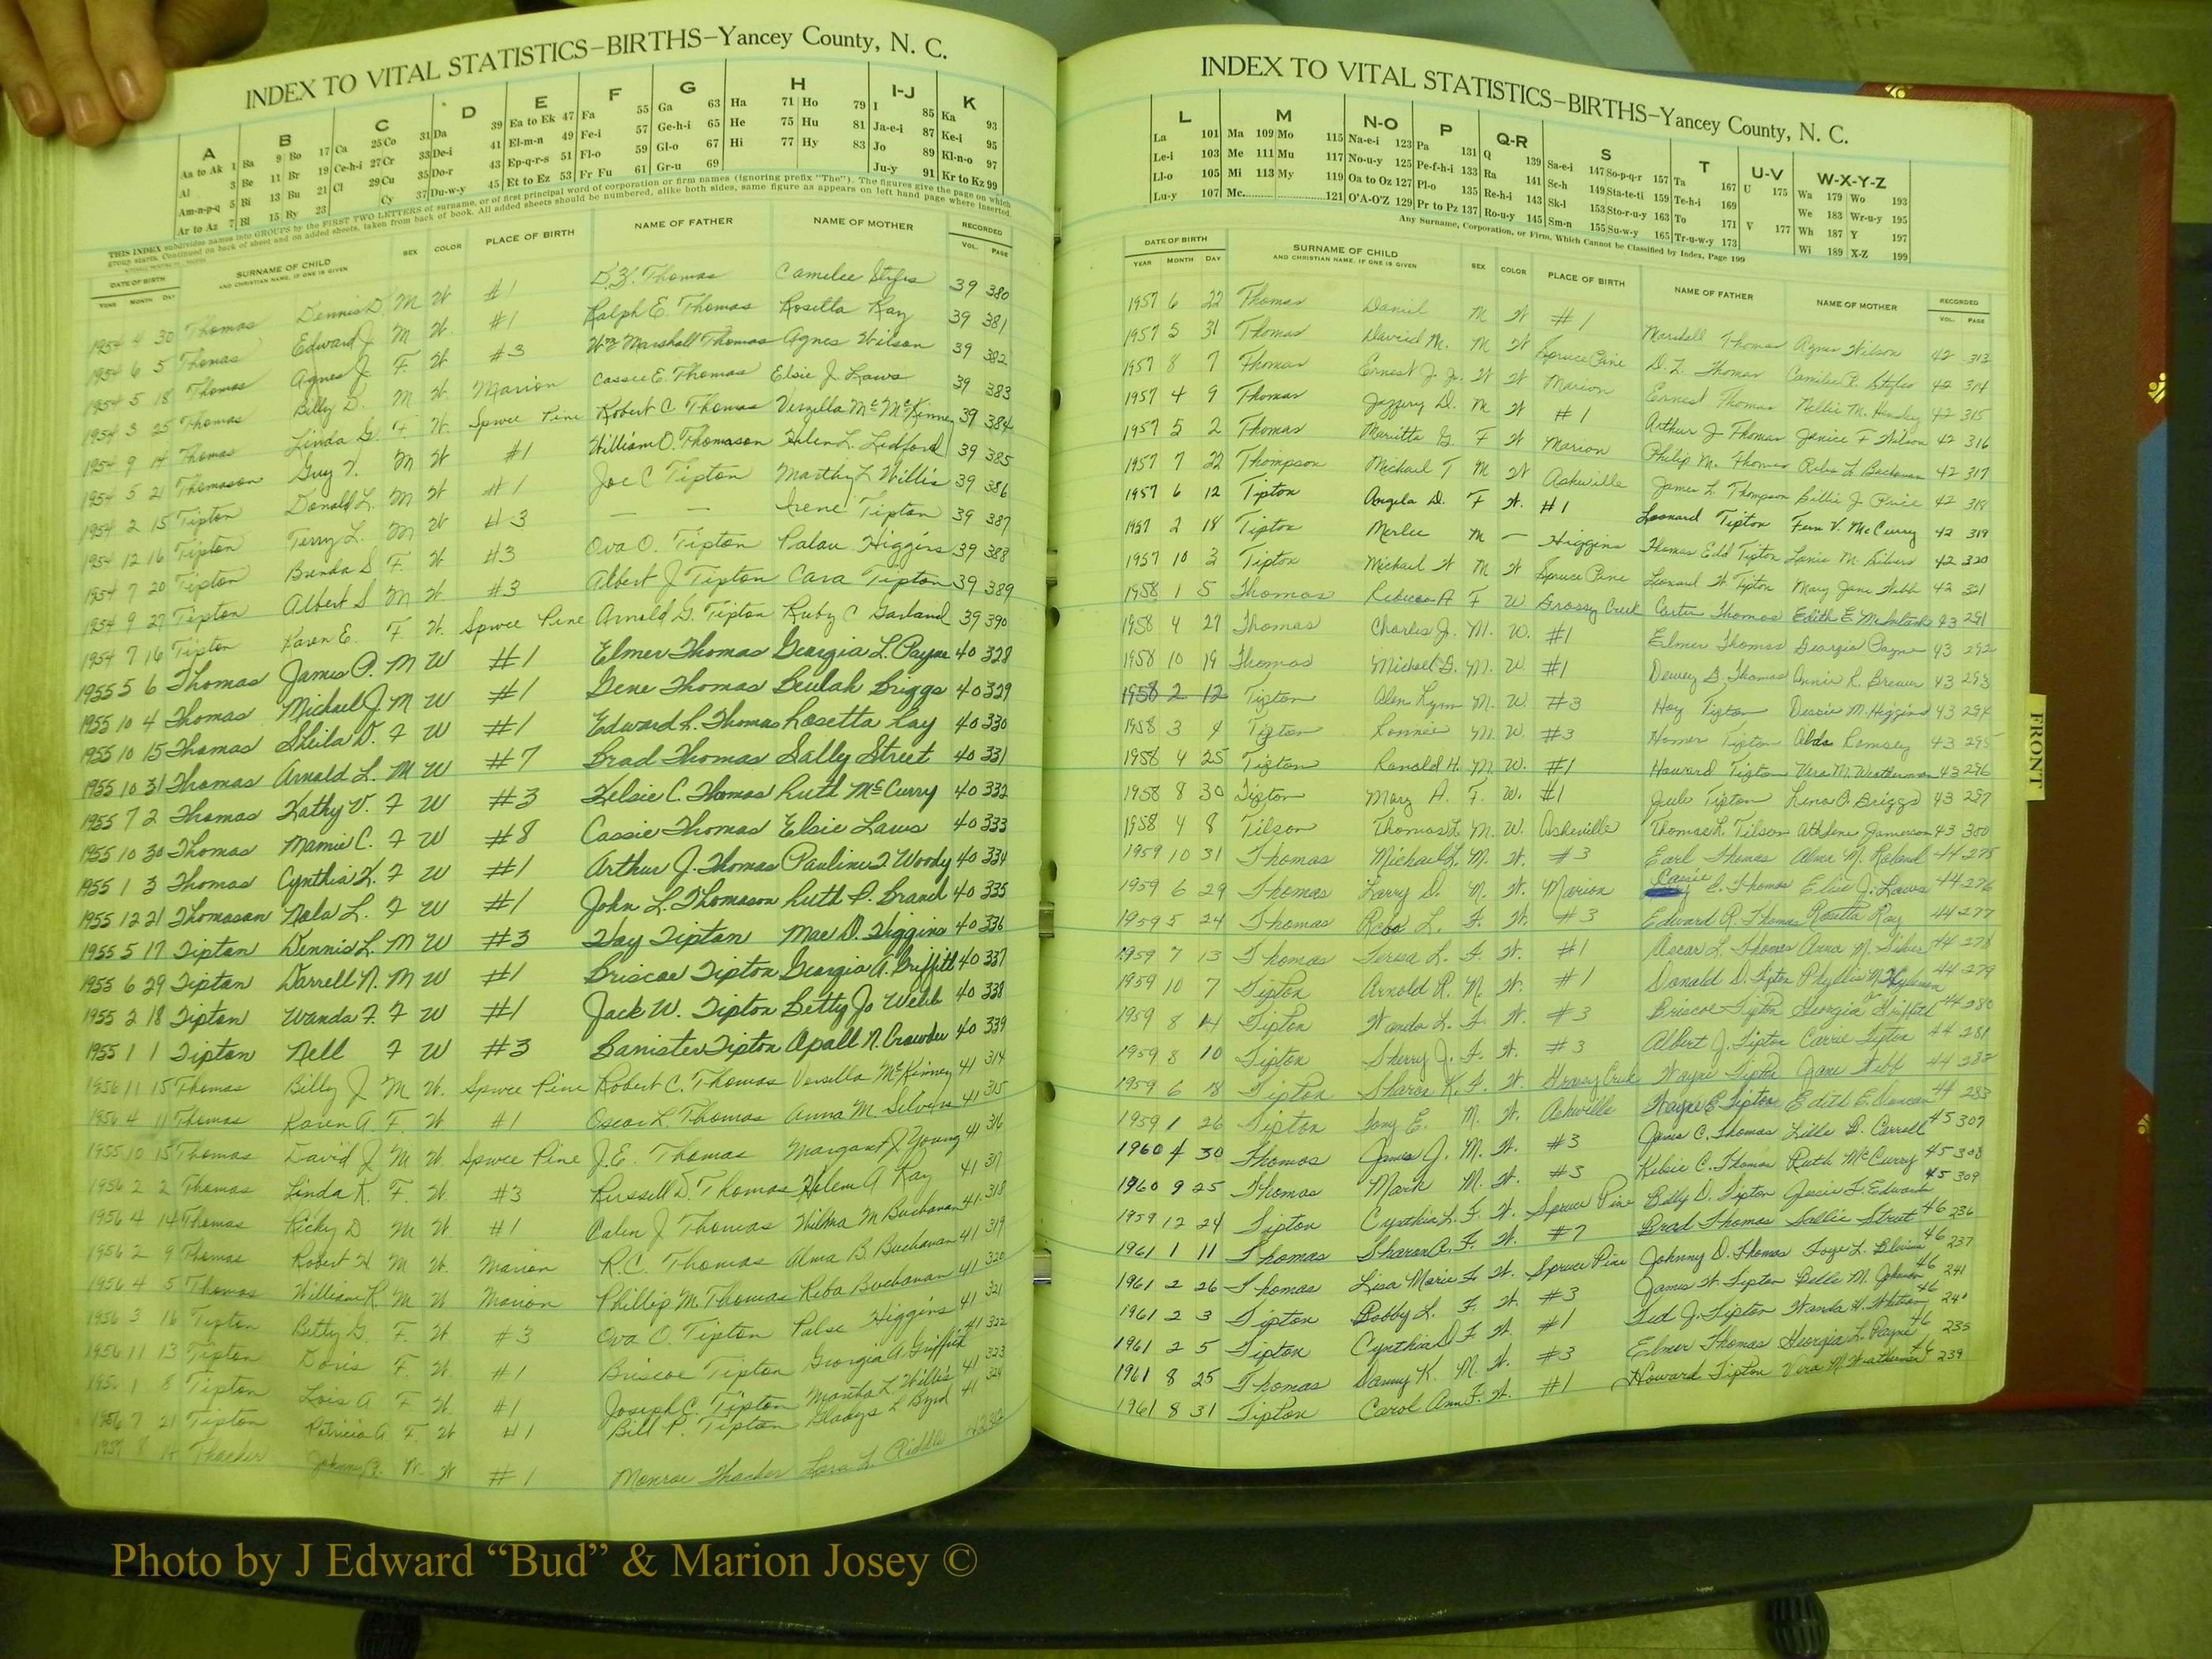 INDEX TO VITAL STATISTICS–BIRTHS–Yancey County, N. C.
A B C D E F G H I-J K
Aa to Ak 1 Ba 9 Bo 17 Ca 25 Co 31 Da 39 Ea to Ek 47 Fa 55 Ga 63 Ha 71 Ho 79 I 85 Ka 93
Al 3 Be 11 Br 19 Ce-h-i 27 Cr 33 De-i 41 El-m-n 49 Fe-i 57 Ge-h-i 65 He 75 Hu 81 Ja-e-i 87 Ke-i 95
Am-n-p-q 5 Bi 13 Bu 21 Cl 29 Cu 35 Do-r 43 Ep-q-r-s 51 Fl-o 59 Gl-o 67 Hi 77 Hy 83 Jo 89 Kl-n-o 97
Ar to Az 7 Bl 15 By 23 Cy 37 Du-w-y 45 Et to Ez 53 Fr Fu 61 Gr-u 69 Ju-y 91 Kr to Kz 99
THIS INDEX subdivides names into GROUPS by the FIRST TWO LETTERS of surname, or of first principal word of corporation or firm names (ignoring prefix "The"). The figures give the page on which
group starts. Continued on back of sheet and on added sheets, taken from back of book. All added sheets should be numbered, alike both sides, same figure as appears on left hand page where inserted.
DATE OF BIRTH SURNAME OF CHILD SEX COLOR PLACE OF BIRTH NAME OF FATHER NAME OF MOTHER RECORDED
YEAR MONTH DAY AND CHRISTIAN NAME, IF ONE IS GIVEN VOL. PAGE
1954 4 30 Thomas Dennis D. M W #1 D.Z. Thomas Camelee Styles 39 380
1954 6 5 Thomas Edward J. M W. #1 Ralph E. Thomas Rosetta Ray 39 381
1954 5 18 Thomas Agnes J. F. W #3 Wm Marshall Thomas Agnes Wilson 39 382
1954 3 25 Thomas Billy D. M W. Marion Cassie E. Thomas Elsie J. Laws 39 383
1954 9 14 Thomas Linda G. F W. Spruce Pine Robert C. Thomas Verzella Mc McKinney 39 384
1954 5 21 Thomason Guy T. M W #1 William O. Thomason Helen L. Ledford 39 385
1954 2 15 Tipton Donald L. M W #1 Joe C Tipton Martha L Willis 39 386
1954 12 16 Tipton Terry L. M W #3 — — Irene Tipton 39 387
1954 7 20 Tipton Brenda S F. W #3 Ova O. Tipton Palau Higgins 39 388
1954 9 27 Tipton Albert S M W. #3 Albert J Tipton Cara Tipton 39 389
1954 7 16 Tipton Karen E. F. W. Spruce Pine Arnold G. Tipton Ruby C Garland 39 390
1955 5 6 Thomas James P. M W #1 Elmer Thomas Georgia L. Payne 40 328
1955 10 4 Thomas Michael J. M W #1 Gene Thomas Beulah Briggs 40 329
1955 10 15 Thomas Sheila D. F W #1 Edward R. Thomas Rosetta Ray 40 330
1955 10 31 Thomas Arnold L. M W #7 Brad Thomas Sally Street 40 331
1955 7 2 Thomas Kathy V. F W #3 Kelsie C. Thomas Ruth McCurry 40 332
1955 10 30 Thomas Mamie C. F W #8 Cassie Thomas Elsie Laws 40 333
1955 1 3 Thomas Cynthia K. F W #1 Arthur J. Thomas Pauline F Woody 40 334
1955 12 21 Thomason Nola L. F W #1 John L. Thomason Ruth P. Branch 40 335
1955 5 17 Tipton Dennis L. M W #3 Hoy Tipton Mae D. Higgins 40 336
1955 6 29 Tipton Darrell N. M W #1 Briscoe Tipton Georgia A. Griffith 40 337
1955 2 18 Tipton Wanda F. F W #1 Jack W. Tipton Betty Jo Webb 40 338
1955 1 1 Tipton Nell F W #3 Banister Tipton Opall N. Crowder 40 339
1956 11 15 Thomas Billy J M W. Spruce Pine Robert C. Thomas Versella McKinney 41 314
1956 4 11 Thomas Karen A. F. W #1 Oscar L Thomas Anna M. Silvers 41 315
1955 10 15 Thomas David J M W. Spruce Pine J.E. Thomas Margaret J Young 41 316
1956 2 2 Thomas Linda K. F. W. #3 Russell D. Thomas Helen A Ray 41 317
1956 4 14 Thomas Ricky D M W. #1 Calen J Thomas Wilma M Buchanan 41 318
1956 2 9 Thomas Robert H M W. Marion R.C. Thomas Alma B. Buchanan 41 319
1956 4 5 Thomas William R. M W Marion Phillip M. Thomas Reba Buchanan 41 320
1956 3 16 Tipton Betty G. F. W. #3 Ova O. Tipton Palse Higgins 41 321
1956 11 13 Tipton Doris F. W. #1 Briscoe Tipton Georgia A Griffith 41 322
1956 1 8 Tipton Lois A F W. #1 Joseph C. Tipton Martha L. Willis 41 323
1956 7 21 Tipton Patricia A F. W #1 Bill P. Tipton Gladys L Byrd 41 324
1957 8 14 Thacker Johnny R. M W #1 Monroe Thacker Riddle
INDEX TO VITAL STATISTICS–BIRTHS–Yancey County, N. C.
L M N-O P Q-R S T U-V W-X-Y-Z
La 101 Ma 109 Mo 115 Na-e-i 123 Pa 131 Q 139 Sa-e-i 147 So-p-q-r 157 Ta 167 U 175 Wa 179 Wo 193
Le-i 103 Me 111 Mu 117 No-u-y 125 Pe-f-h-i 133 Ra 141 Sc-h 149 Sta-te-ti 159 Te-h-i 169 We 183 Wr-u-y 195
Ll-o 105 Mi 113 My 119 Oa to Oz 127 Pl-o 135 Re-h-i 143 Sk-l 153 Sto-r-u-y 163 To 171 V 177 Wh 187 Y 197
Lu-y 107 Mc 121 O'A-O'Z 129 Pr to Pz 137 Ro-u-y 145 Sm-n 155 Su-w-y 165 Tr-u-w-y 173 Wi 189 X-Z 199
Any Surname, Corporation, or Firm, Which Cannot be Classified by Index, Page 199
DATE OF BIRTH SURNAME OF CHILD SEX COLOR PLACE OF BIRTH NAME OF FATHER NAME OF MOTHER RECORDED
YEAR MONTH DAY AND CHRISTIAN NAME, IF ONE IS GIVEN VOL. PAGE
1957 6 22 Thomas Daniel M W #1 Marshall Thomas Agnes Wilson 42 313
1957 5 31 Thomas David M. M W Spruce Pine D. L. Thomas Camilee R. Styles 42 314
1957 8 7 Thomas Ernest J. Jr. W W Marion Ernest Thomas Nellie M. Hensley 42 315
1957 4 9 Thomas Jeffery D. M W #1 Arthur J Thomas Janice F Wilson 42 316
1957 5 2 Thomas Maritta G. F W Marion Philip M. Thomas Reba L Buchanan 42 317
1957 7 22 Thompson Michael T M W Asheville James L. Thompson Billie J Price 42 318
1957 6 12 Tipton Angela D. F W. #1 Leonard Tipton Fern V. McCurry 42 319
1957 2 18 Tipton Merlee M — Higgins Thomas Edd Tipton Lonie M. Silvers 42 320
1957 10 2 Tipton Michael W M W Spruce Pine Leonard W. Tipton Mary Jane Webb 42 321
1958 1 5 Thomas Rebecca A F W Grassy Creek Carter Thomas Edith E. McIntosh 43 291
1958 4 27 Thomas Charles J. M. W. #1 Elmer Thomas Georgia Payne 43 292
1958 10 19 Thomas Michael G. M. W #1 Dewey G. Thomas Annie R. Brewer 43 293
1958 2 12 Tipton Alen Lynn M. W. #3 Hoy Tipton Dessie M. Higgins 43 294
1958 3 4 Tipton Ronnie M. W. #3 Homer Tipton Alda Ramsey 43 295
1958 4 25 Tipton Ranold H. M. W. #1 Howard Tipton Vera M. Weatherman 43 296
1958 8 30 Tipton Mary A. F. W. #1 Jule Tipton Lena O. Briggs 43 297
1958 4 8 Tilson Thomas L M. W. Asheville Thomas L. Tilson Athlene Jamerson 43 300
1959 10 31 Thomas Michael L. M. W. #3 Earl Thomas Alma M. Roland 44 275
1959 6 29 Thomas Larry D. M. W. Marion Cassie E. Thomas Elsie J. Laws 44 276
1959 5 24 Thomas Reba L. F. W. #3 Edward R. Thomas Rosetta Ray 44 277
1959 7 13 Thomas Teresa L. F. W. #1 Oscar L. Thomas Anna M. Silver 44 278
1959 10 7 Tipton Arnold R. M. W. #1 Donald D. Tipton Phyllis M. 44 279
1959 8 14 Tipton Wanda L. F. W. #3 Briscoe Tipton Georgia Griffith 44 280
1959 8 10 Tipton Sherry J. F. W. #3 Albert J. Tipton Carrie Tipton 44 281
1959 6 18 Tipton Sharon K. F. W. Grassy Creek Wayne Tipton Jane Webb 44 282
1959 1 26 Tipton Tony E. M. W. Asheville Wayne E. Tipton Edith E. Duncan 44 283
1960 4 30 Thomas James J. M. W. #3 James C. Thomas Lille B. Carroll 45 307
1960 9 25 Thomas Mark M. W. #3 Kelsie C. Thomas Ruth McCurry 45 308
1959 12 24 Tipton Cynthia L. F. W. Spruce Pine Billy D. Tipton Jessie F. Edwards 45 309
1961 1 11 Thomas Sharon A. F. W. #7 Brad Thomas Sallie Street 46 236
1961 2 26 Thomas Lisa Marie F. W. Spruce Pine Johnny D. Thomas Faye L. Blevins 46 237
1961 2 3 Tipton Bobby L. F. W. #3 James W. Tipton Belle M. Johnson 46 241
1961 2 5 Tipton Cynthia D F W. #1 Ted J. Tipton Wanda H. Whitson 46 240
1961 8 25 Thomas Danny K. M. W. #3 Elmer Thomas Georgia L. Payne 46 235
1961 8 31 Tipton Carol Ann F. W. #1 Howard Tipton Vera M. Weatherman 46 239
FRONT
Photo by J Edward “Bud” & Marion Josey ©